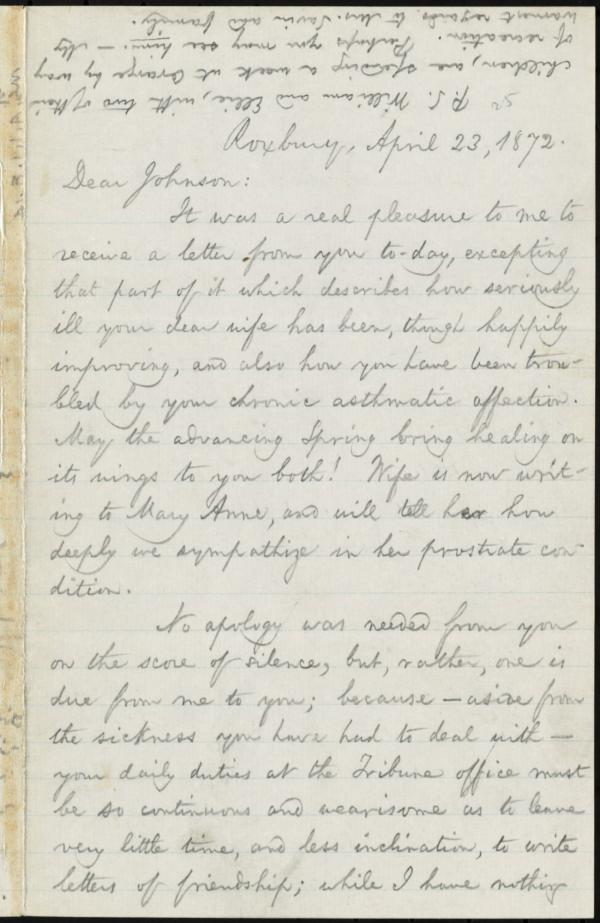 P.S. William and Ellie, with two of their
children, are spending a week at Orange by way
of recreation. Perhaps you may see him. — My
warmest regards to Mrs. Savin and family.
Roxbury, April 23, 1872.
Dear Johnson:
It was a real pleasure to me to
receive a letter from you to-day, excepting
that part of it which describes how seriously
ill your dear wife has been, though happily
improving, and also how you have been trou-
bled by your chronic asthmatic affection.
May the advancing Spring bring healing on
its wings to you both! Wife is now writ-
ing to Mary Anne, and will tell her how
deeply we sympathize in her prostrate con-
dition.
No apology was needed from you
on the score of silence, but, rather, one is
due from me to you; because — aside from
the sickness you have had to deal with —
your daily duties at the Tribune office must
be so continuous and wearisome as to leave
very little time, and less inclination, to write
letters of friendship; while I have nothing